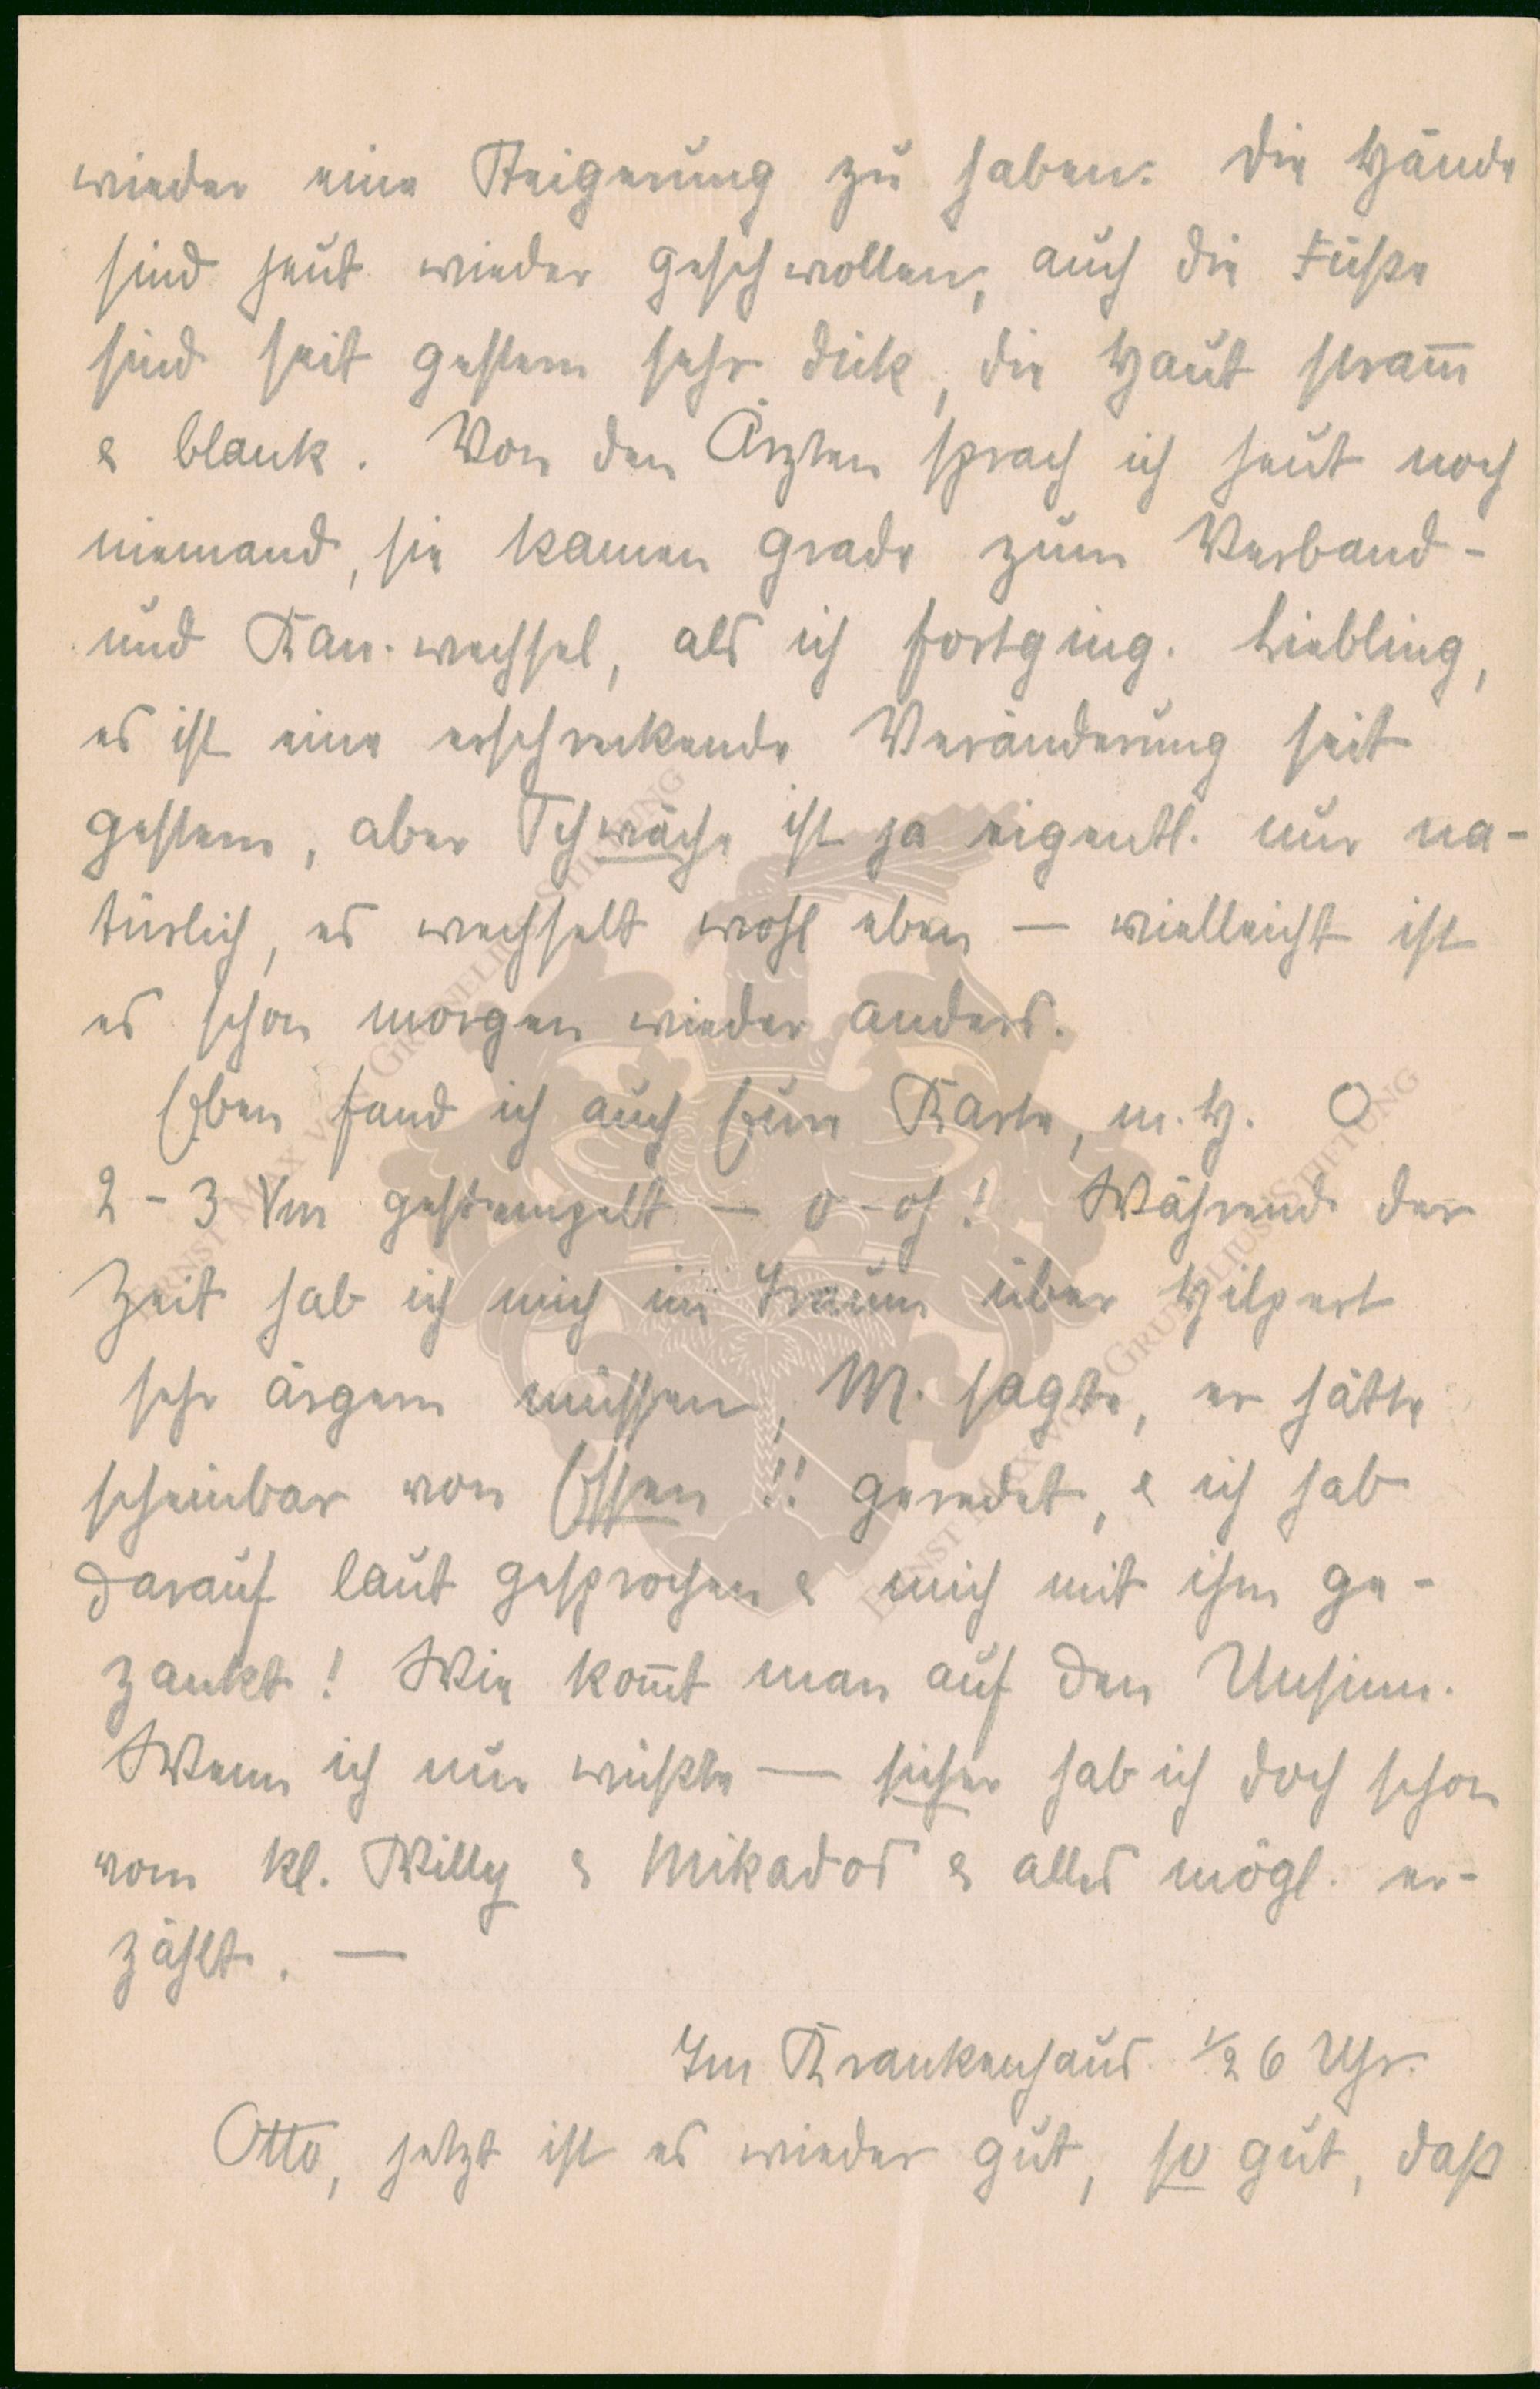 wieder eine Steigerung zu haben. Die Hände
sind heut wieder geschwollen, auch die Füße
sind seit gestern sehr dick, die Haut stram̅
& blank. Von den Ärzten sprach ich heut noch
niemand, sie kamen grade zum Verband-
und Kan.wechsel, als ich fortging. Liebling,
es ist eine erschreckende Veränderung seit
gestern, aber Schwäche ist ja eigentl. nur na-
türlich, es wechselt wohl eben — vielleicht ist
es schon morgen wieder anders.
Eben fand ich auch Eure Karte, m. H. O
2 - 3 Vm gestempelt — o-oh! Während der
Zeit hab ich mich im Traum über Hilpert
sehr ärgern müssen, M. sagte, er hätte
scheinbar von Essen !! geredet, & ich hab
darauf laut gesprochen & mich mit ihm ge-
zankt! Wie kom̅t man auf den Unsinn.
Wenn ich nur wüßte — sicher hab ich doch schon
vom kl. Willy & Mikados & alles mögl. er-
zählt. —
Im Krankenhaus. 1/2 6 Uhr.
Otto, jetzt ist es wieder gut, so gut, daß
ERNST MAX VON GRUNELIUS-STIFTUNG
ERNST MAX VON GRUNELIUS-STIFTUNG